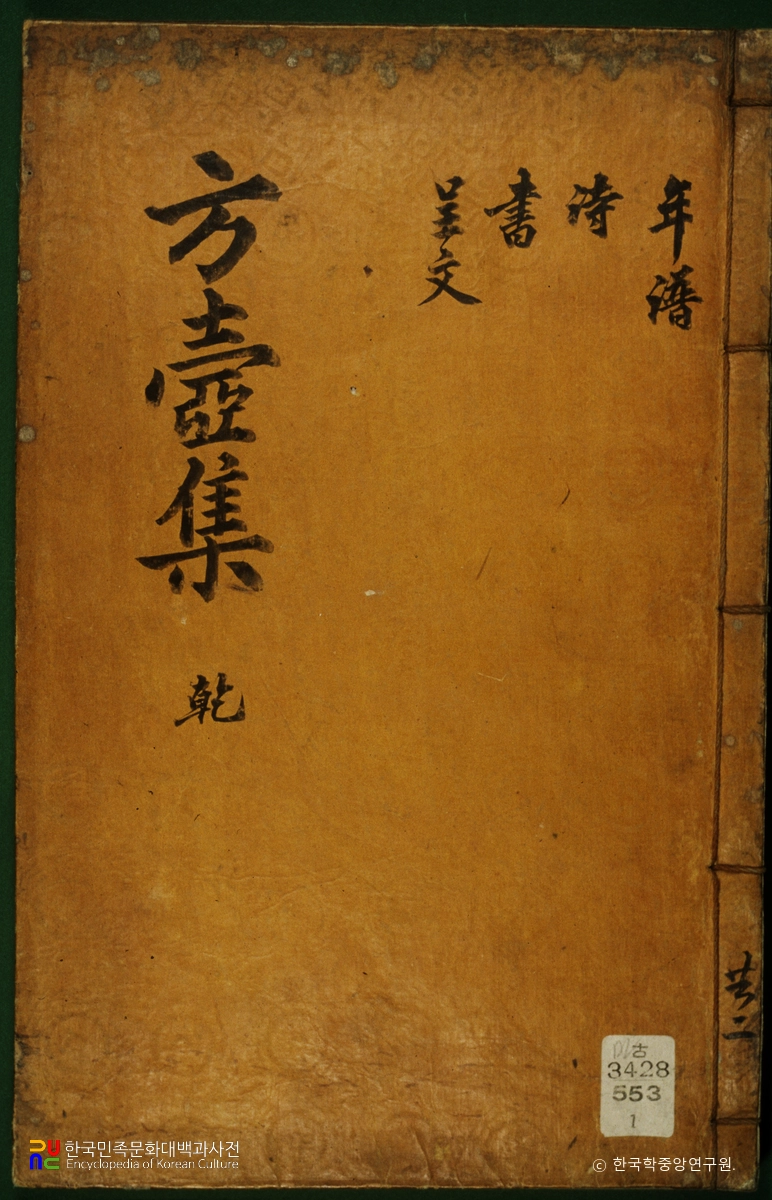 年譜
詩
書
呈文
方壺集
乾
共二
古
3428
553
1
한국민족문화대백과사전
Encyclopedia of Korean Culture
© 한국학중앙연구원.